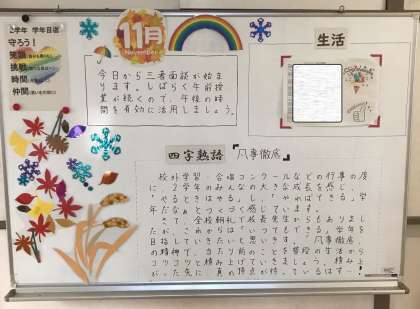 2学年 学年目標
守ろう!
笑顔
挑戦
時間
仲間
11月
November
生活
今日から三者面談が始ま
ります。しばらく午前授
業が続くので、午後の時
間を有効に活用しましょう。
四字熟語 「凡事徹底」
校外学習、合唱コンクールなどの行事の度
に、2学年のみんなの大きな成長を感じ、
「やるときはやる」し、「やればできる」学
年だなぁとつくづく感じています。
さて、全校朝礼で校長先生からもありまし
たが、これからは「いつでもできる」学年を
目指していきたいと思います。「凡事徹底」
の精神で、当たり前のことを普段の生活から
コツコツと積み上げていきましょう。積み上
がった先に真の頂点が待っているはず